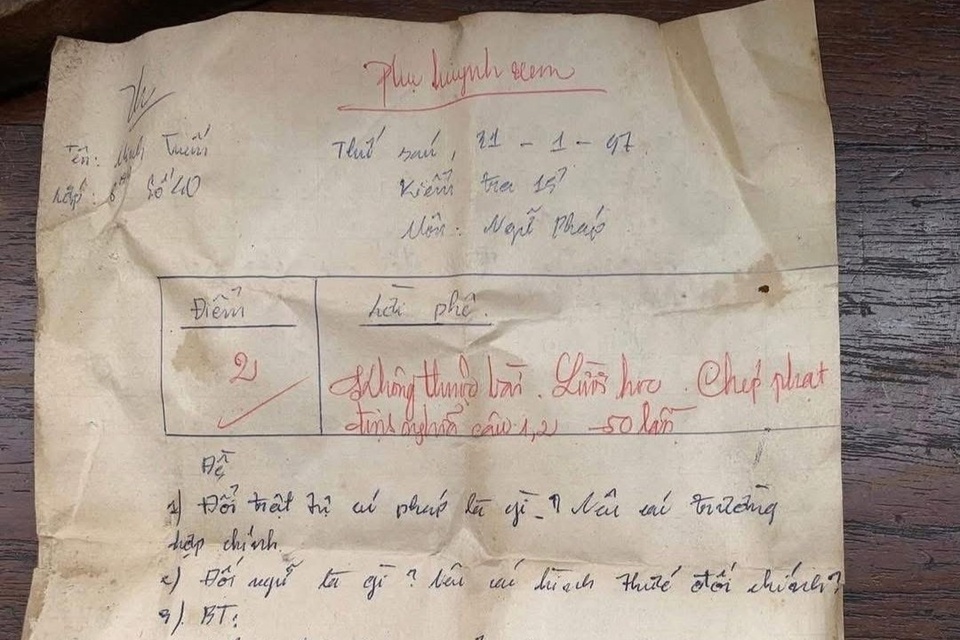 Phụ huynh xem
Tên: Minh Tuấn
Lớp: 8 Số 40
Thứ sáu, 31 - 1 - 97
Kiểm tra 15'
Môn: Ngữ Pháp
Điểm
Lời phê.
2
Không thuộc bài. Lười học. Chép phạt
định nghĩa câu 1,2 50 lần
Đề
1) Đổi trật tự cú pháp là gì? Nêu các trường
hợp chính
2) Đối ngữ là gì? Nêu các hình thức đối chính?
3). BT: